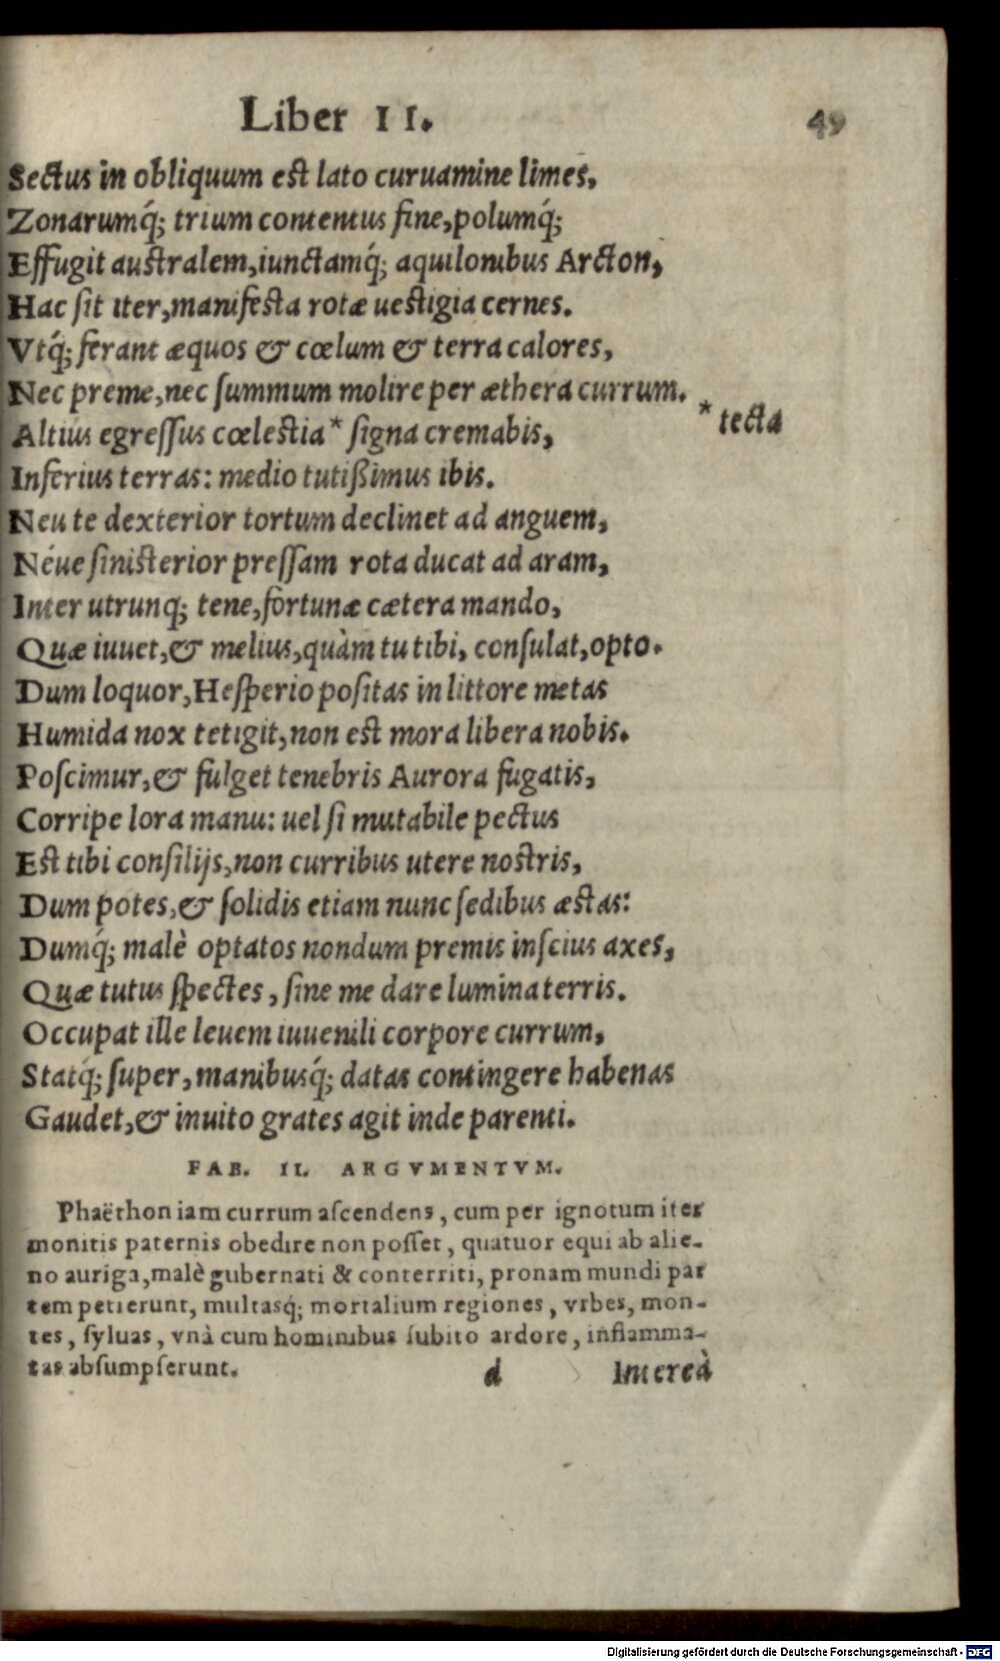 Liber II. 49
Sectus in obliquum est lato curuamine limes,
Zonarumq́; trium contentus fine, polumq́;
Effugit australem, iunctamq́; aquilonibus Arcton,
Hac sit iter, manifesta rotæ uestigia cernes.
Vtq́; ferant æquos & cœlum & terra calores,
Nec preme, nec summum molire per æthera currum.
Altiùs egressus cœlestia* signa cremabis, *tecta
Inferius terras: medio tutißimus ibis.
Neu te dexterior tortum declinet ad anguem,
Néue sinisterior pressam rota ducat ad aram,
Inter utrunq; tene, fortunæ cætera mando,
Quæ iuuet, & melius, quàm tu tibi, consulat, opto.
Dum loquor, Hesperio positas in littore metas
Humida nox tetigit, non est mora libera nobis.
Poscimur, & fulget tenebris Aurora fugatis,
Corripe lora manu: uel si mutabile pectus
Est tibi consilijs, non curribus utere nostris,
Dum potes, & solidis etiam nunc sedibus æstas:
Dumq́; malè optatos nondum premis inscius axes,
Quæ tutus spectes, sine me dare lumina terris.
Occupat ille leuem iuuenili corpore currum,
Statq́; super, manibusq́; datas contingere habenas
Gaudet, & inuito grates agit inde parenti.
FAB. II. ARGVMENTVM.
Phaëthon iam currum ascendens, cum per ignotum iter
monitis paternis obedire non posset, quatuor equi ab alie-
no auriga, malè gubernati & conterriti, pronam mundi par
tem petierunt, multasq́; mortalium regiones, vrbes, mon-
tes, syluas, vnà cum hominibus subito ardore, inflamma-
tas absumpserunt.
d Intereà
Digitalisierung gefördert durch die Deutsche Forschungsgemeinschaft - DFG